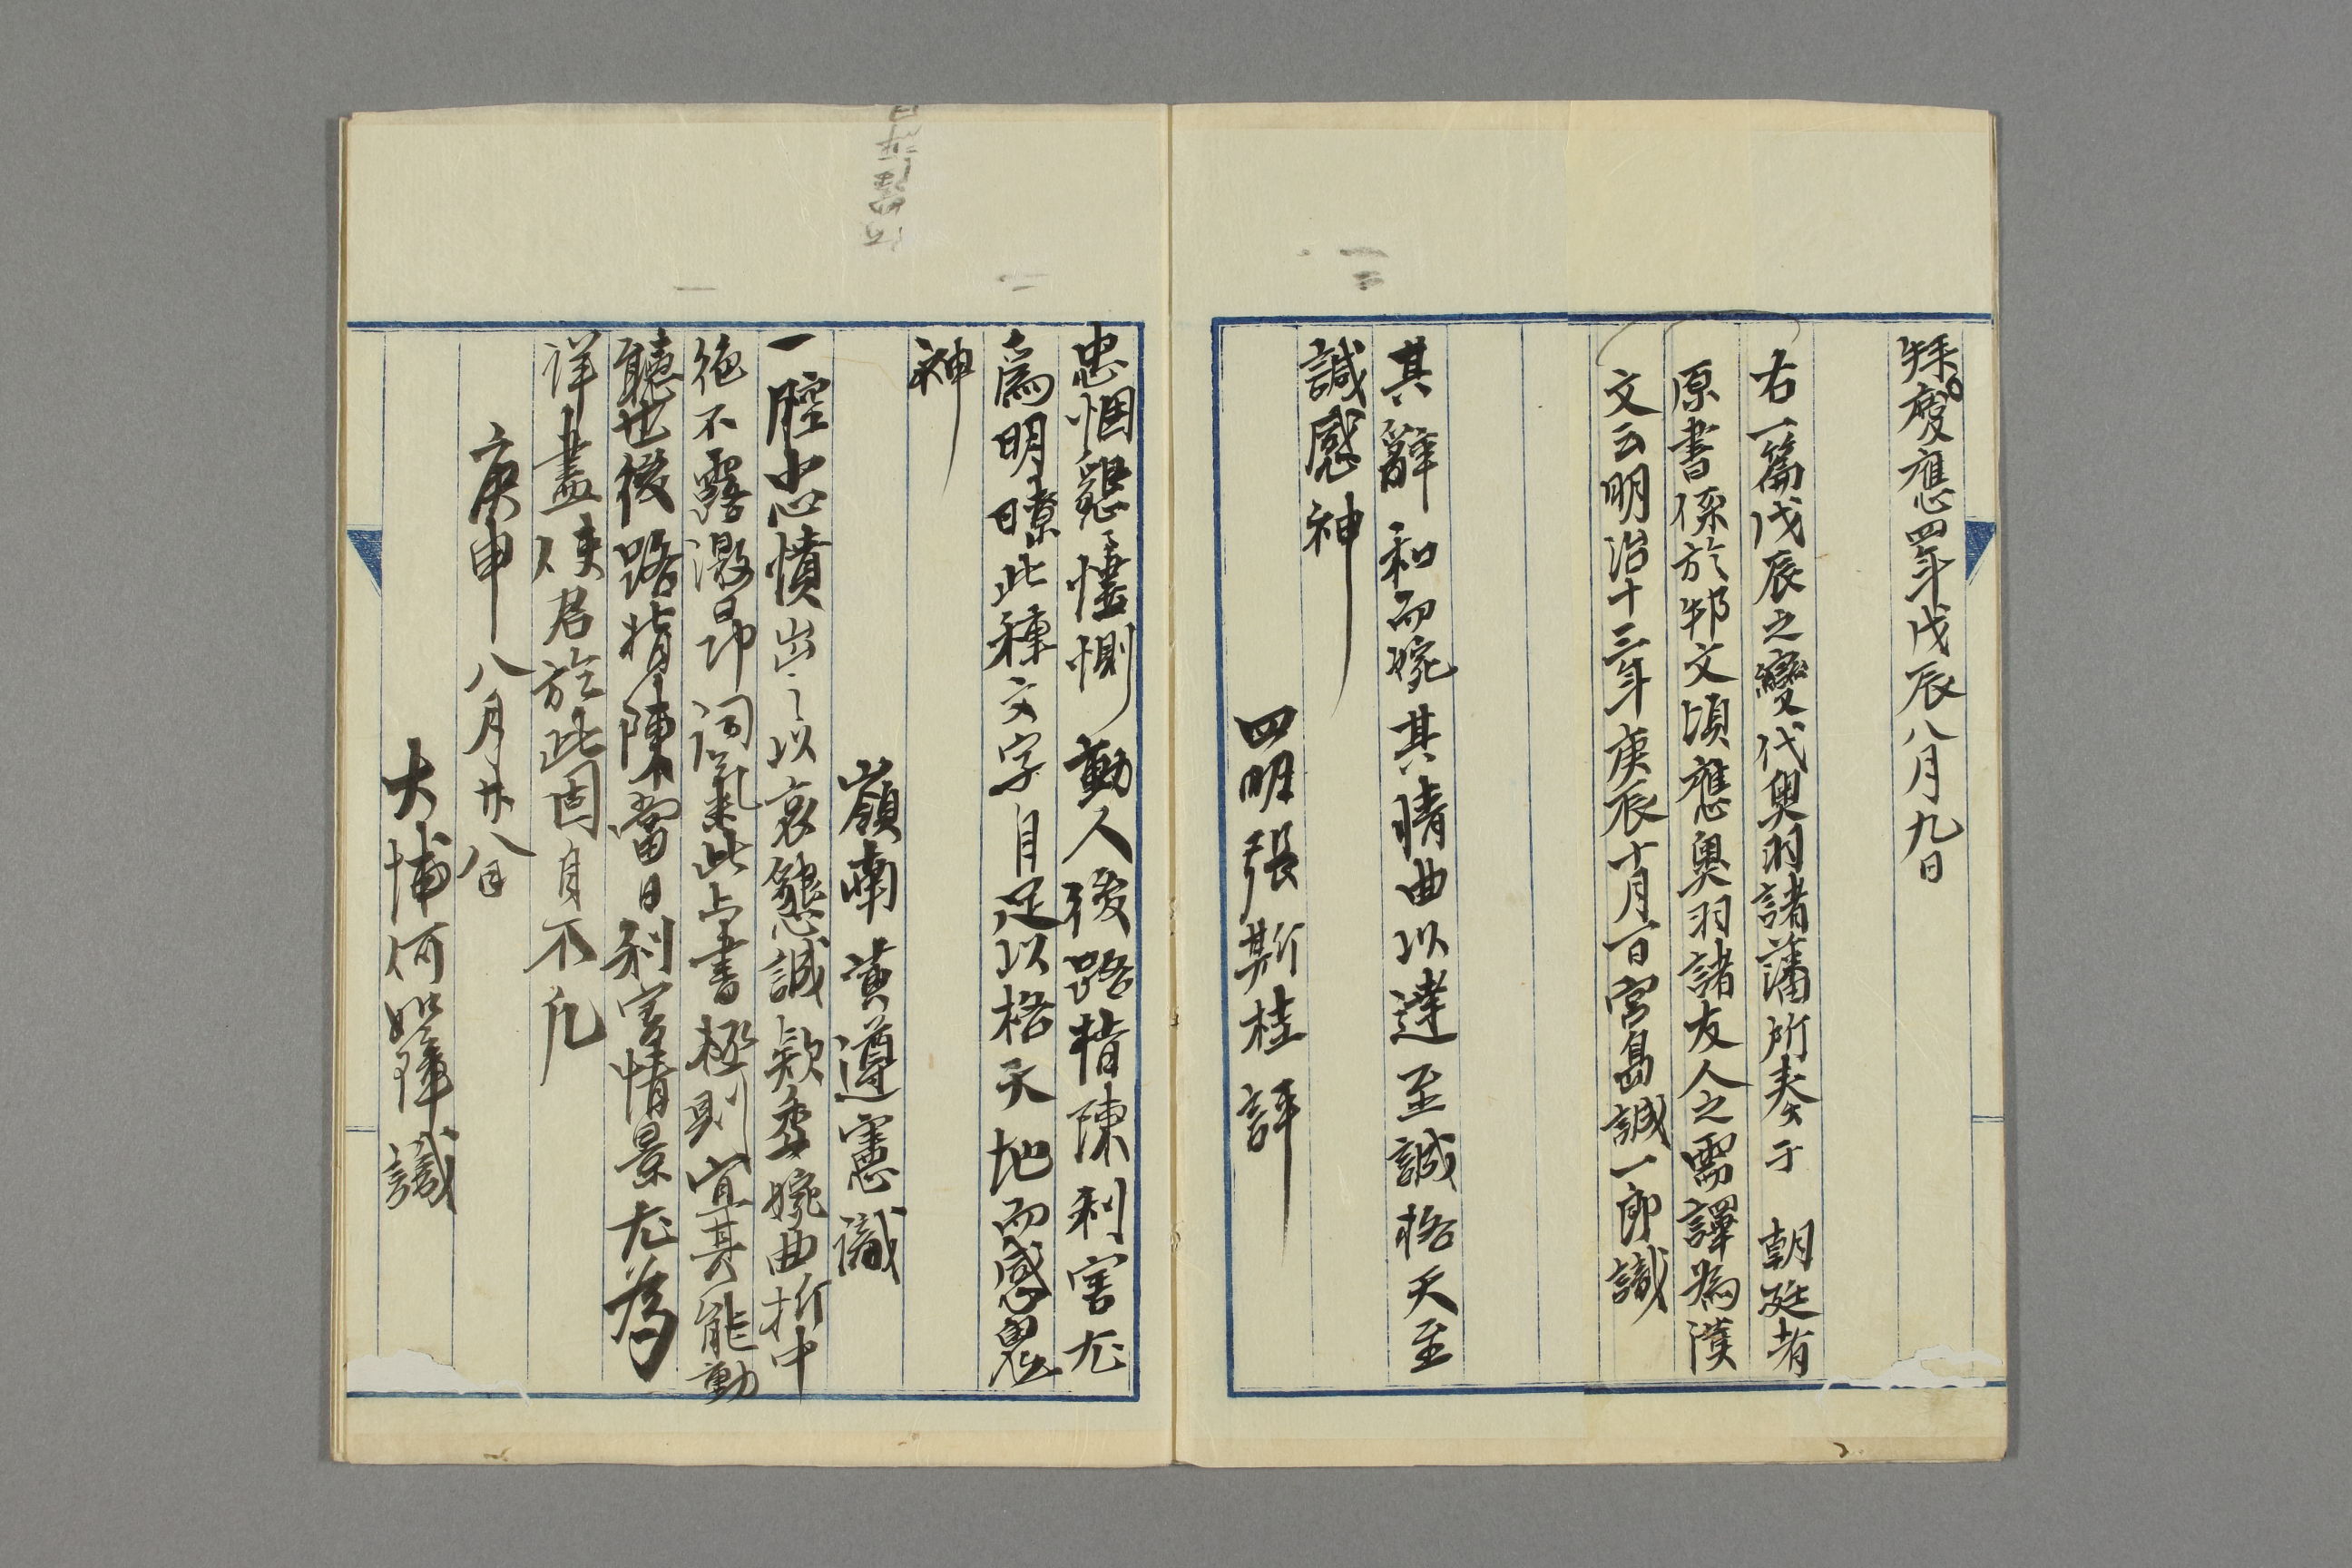 拜。慶應四年戊辰八月九日
右一篇戊辰之變代奥羽諸藩所奏于　朝廷者
原書係於邦文頃應奥羽諸友人之需譯為漢
文云明治十三年庚辰十月一日宮島誠一郎識
其辭和而婉其情曲以達至誠格天至
誠感神
四明張斯桂評
忠悃懇懇悽惻動人後路指陳利害尤
為明瞭此種文字自足以格天地而感鬼
神
嶺南黃遵憲識
一腔忠憤出之以哀懇誠款委婉曲折中
絶不露激昂詞氣此上書極則宜其能動
聽也後路指陳當日利害情景尤為
詳盡使君於此固自不凡
庚申八月廿八日
大埔何如璋識